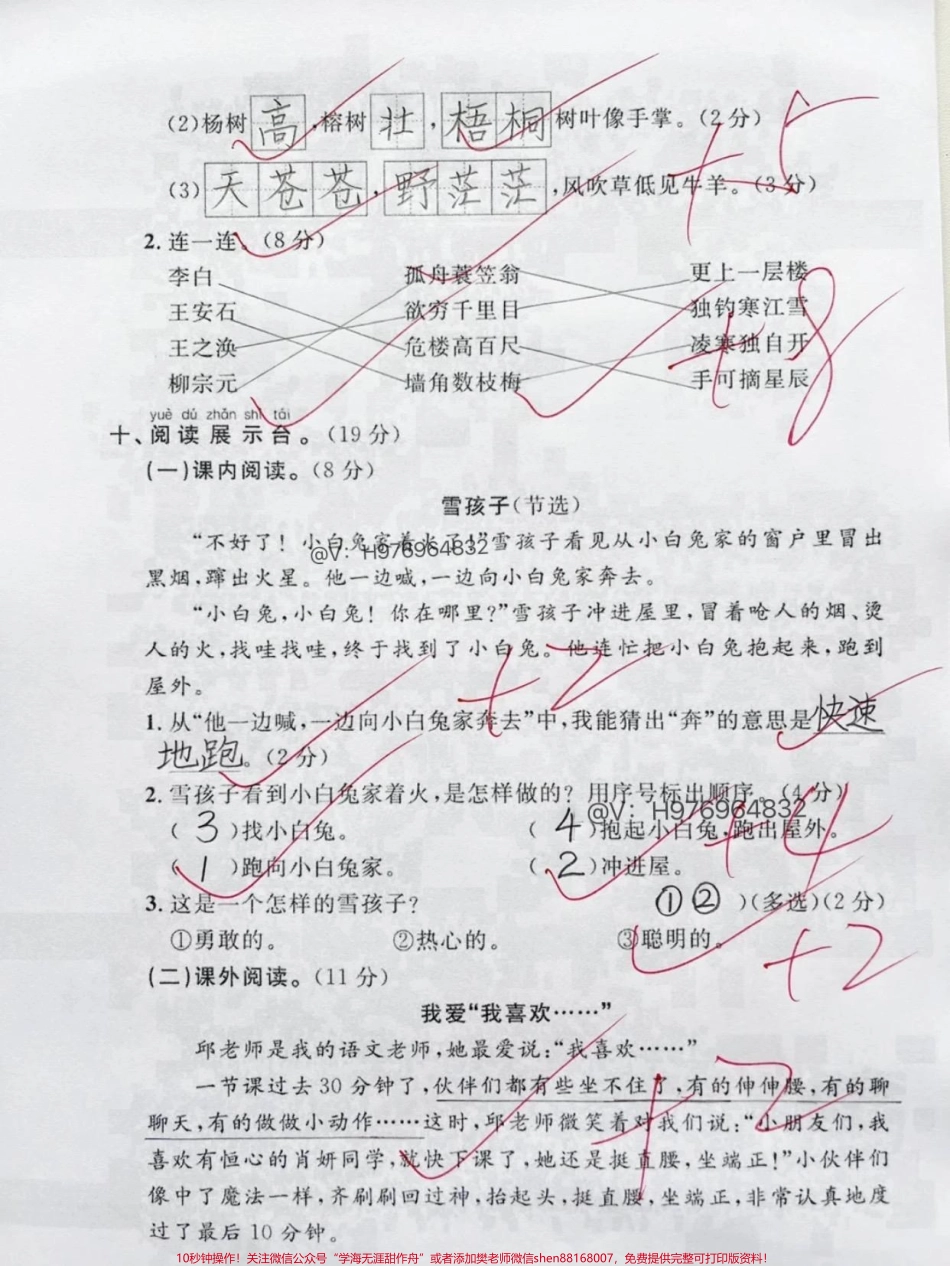 (2)杨树高,榕树壮,梧桐树叶像手掌。(2分)
(3)天苍苍,野茫茫,风吹草低见牛羊。(3分)
+5
2.连一连。(8分)
李白 孤舟蓑笠翁 更上一层楼
王安石 欲穷千里目 独钓寒江雪
王之涣 危楼高百尺 凌寒独自开
柳宗元 墙角数枝梅 手可摘星辰
+8
yuè dú zhǎn shì tái
十、阅读展示台。(19分)
(一)课内阅读。(8分)
雪孩子(节选)
“不好了!小白兔家着火了!”雪孩子看见从小白兔家的窗户里冒出
@V：H976964832
黑烟,蹿出火星。他一边喊,一边向小白兔家奔去。
“小白兔,小白兔!你在哪里?”雪孩子冲进屋里,冒着呛人的烟、烫
人的火,找哇找哇,终于找到了小白兔。他连忙把小白兔抱起来,跑到
屋外。
+2
1.从“他一边喊,一边向小白兔家奔去”中,我能猜出“奔”的意思是快速
地跑。(2分)
2.雪孩子看到小白兔家着火,是怎样做的?用序号标出顺序。(4分)
@V：H976964832
(3)找小白兔。 (4)抱起小白兔,跑出屋外。
(1)跑向小白兔家。 (2)冲进屋。
+4
3.这是一个怎样的雪孩子? ①② )(多选)(2分)
①勇敢的。 ②热心的。 ③聪明的。
+2
(二)课外阅读。(11分)
我爱“我喜欢……”
邱老师是我的语文老师,她最爱说:“我喜欢……”
一节课过去30分钟了,伙伴们都有些坐不住了,有的伸伸腰,有的聊
聊天,有的做做小动作……这时,邱老师微笑着对我们说:“小朋友们,我
+2
喜欢有恒心的肖妍同学,就快下课了,她还是挺直腰,坐端正!”小伙伴们
像中了魔法一样,齐刷刷回过神,抬起头,挺直腰,坐端正,非常认真地度
过了最后10分钟。
10秒钟操作！关注微信公众号“学海无涯甜作舟”或者添加樊老师微信shen88168007，免费提供完整可打印版资料！